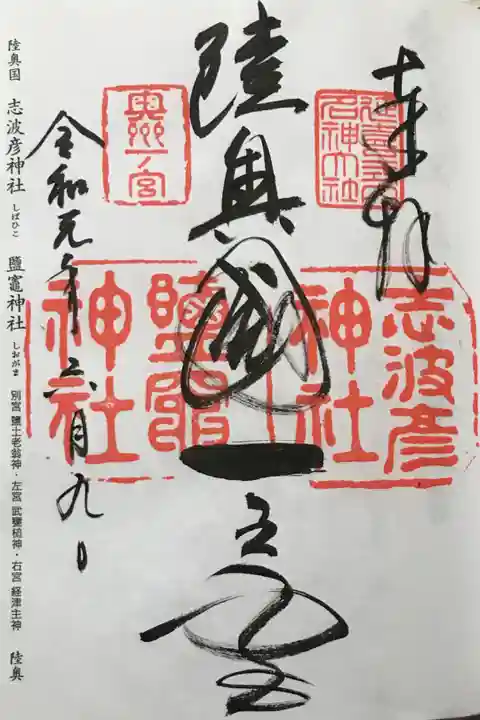 奉拝
延喜式内
名神大社
志波彦
神社
陸奥國一之宮
鹽竈
神社
奥州一ノ宮
令和元年六月九日
陸奥国 志波彦神社 しばひこ 鹽竈神社 しおがま 別宮 鹽土老翁神・左宮 武甕槌神・右宮 経津主神 陸奥